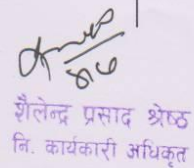 शैलेन्द्र प्रसाद श्रेष्ठ
नि. कार्यकारी अधिकृत